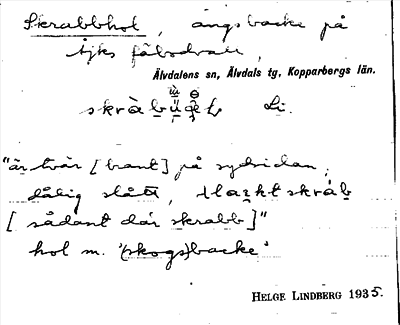 Skrabbhol, ängsbacke på
Åjks fäbodvall,
Älvdalens sn, Älvdals tg, Kopparbergs län.
Li.
"är tvär [brant] på sydsidan,
dålig slått,
[sådant där skrabb]"
hol m. '(skogs)backe'
HELGE LINDBERG 1935.